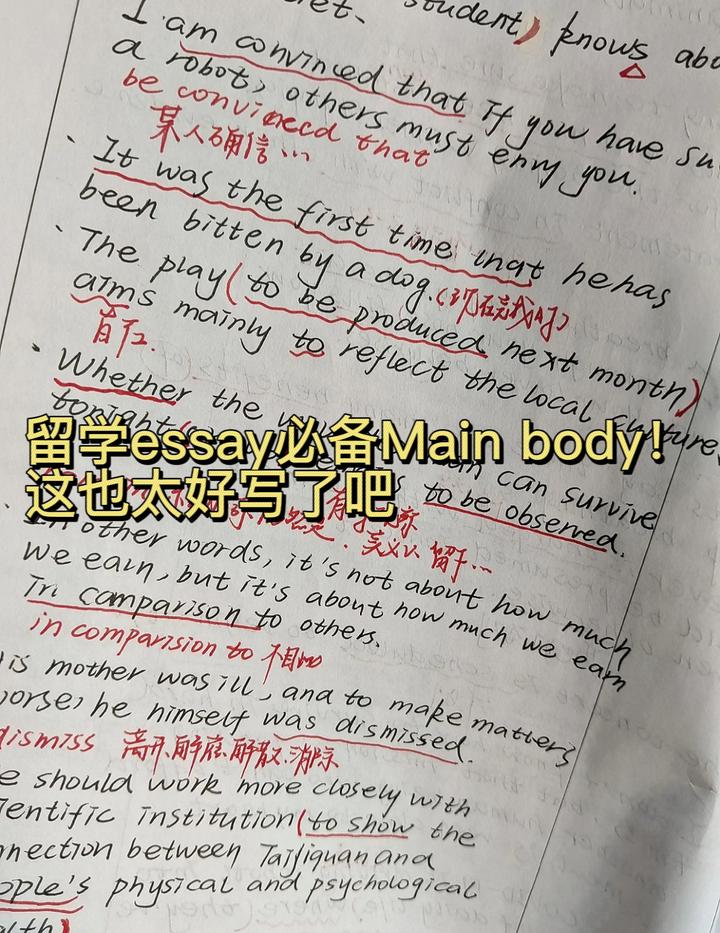 student) knows abo
I am convinced that If you have su
a robot, others must envy you.
be convinced that
某人确信…
It was the first time that he has
been bitten by a dog. (现在完成时)
The play (to be produced next month)
aims mainly to reflect the local culture.
旨在
Whether the can survive
tonight to be observed.
留学essay必备Main body!
这也太好写了吧
In other words, it's not about how much
we earn, but it's about how much we earn
In comparison to others.
in comparision to 相比
is mother was ill, and to make matters
worse, he himself was dismissed.
dismiss 离开,解雇,解散,消除
e should work more closely with
ientific institution (to show the
nnection between Taijiquan and
ople's physical and psychological
alth)